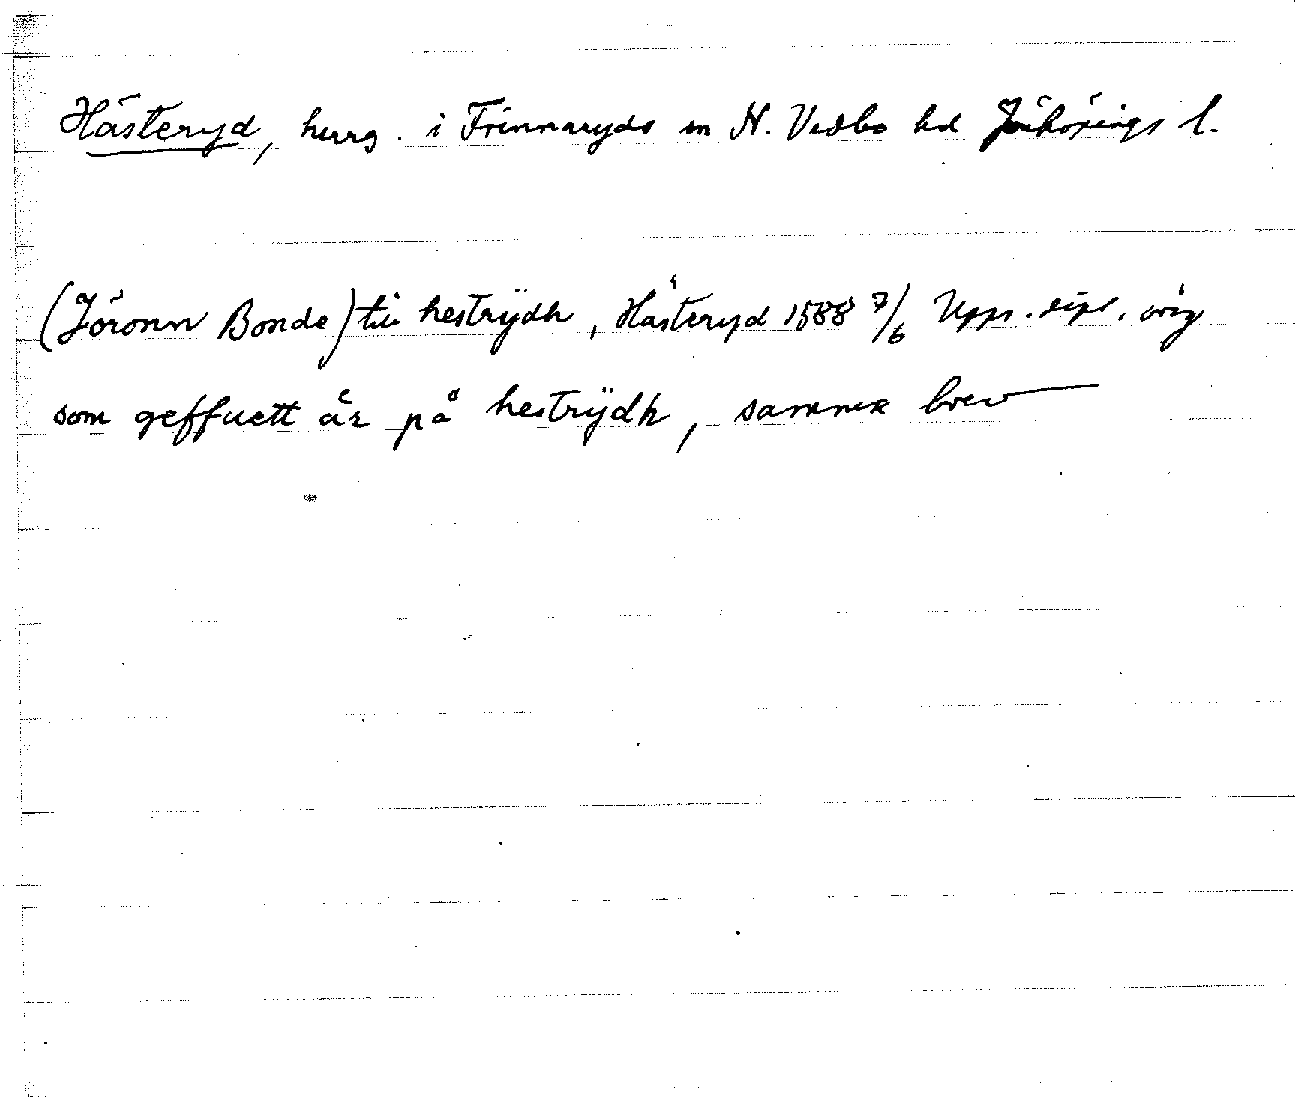 Hästeryd, herrg. i Frinnaryds sn N. Vedbo hd Jönköpings l.
(Jöronn Bonde) till hestrÿdh, Hästeryd 1588 7/6 Upps. dipl. orig
som geffuett är på hestrÿdh, samma brev